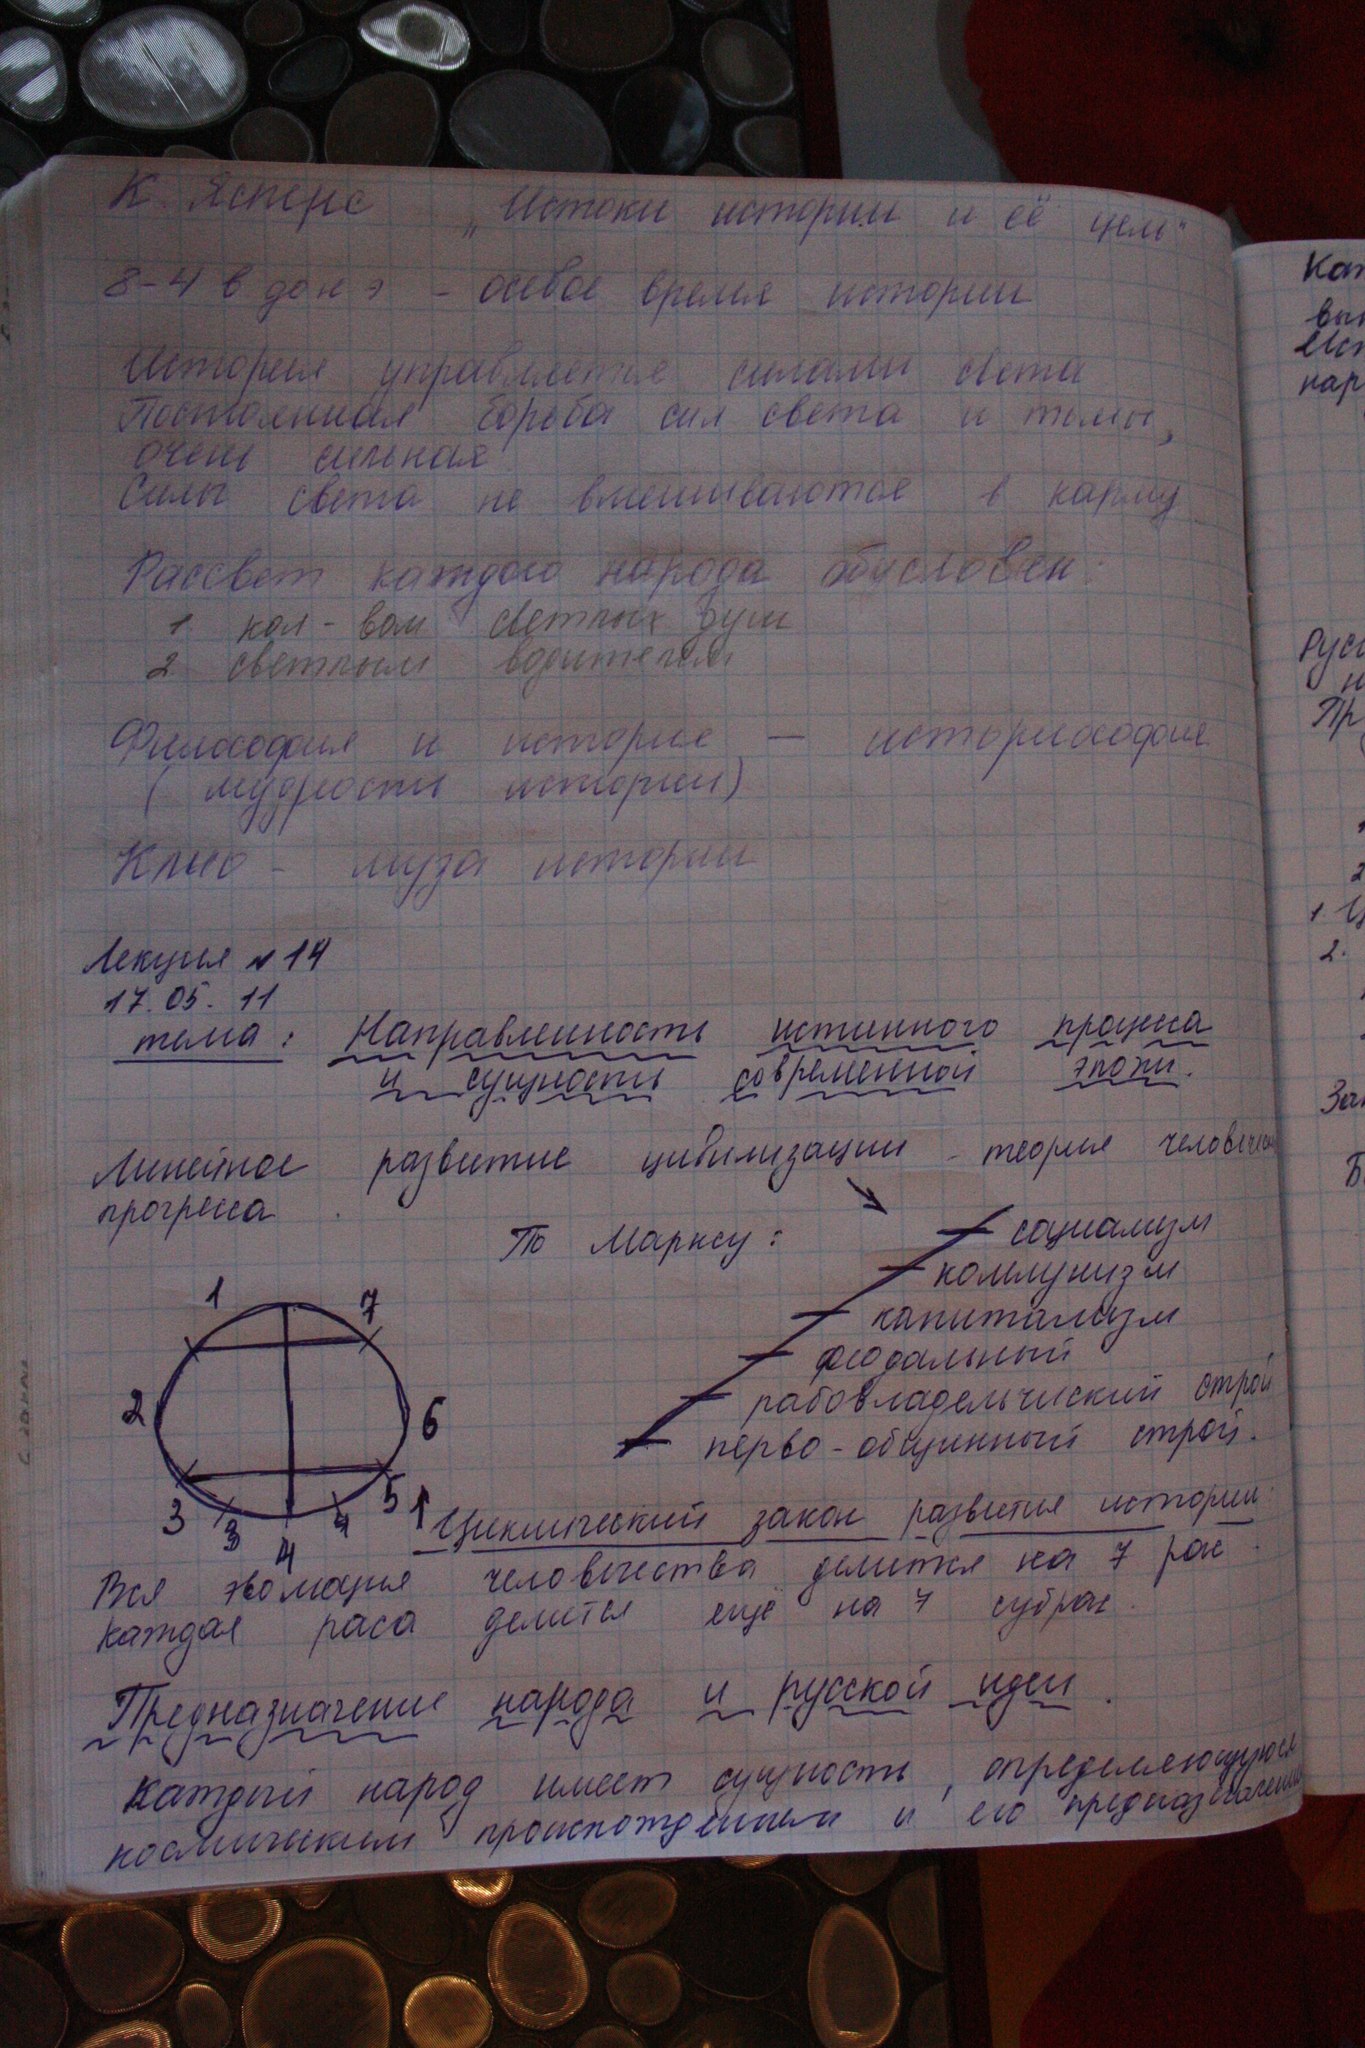 К. Ясперс „Истоки истории и её цель"
8-4 в до н э - осевое время истории
История управляется силами света
Постоянная борьба сил света и тьмы,
очень сильная
Силы света не вмешиваются в карму
Рассвет каждого народа обусловен:
1 кол-вом светлых душ
2 светлым водителем
Философия и история — историософия
(мудрость истории)
Клио - муза истории
Лекция №14
17.05.11
тема: Направленность истинного процесса
и сущность современной эпохи.
Линейное развитие цивилизации - теория
прогресса
По Марксу:
социализм
коммунизм
капитализм
феодальный
рабовладельческий строй
перво-общинный строй.
1 7
2 6
3 3 4 4 5
1 Циклический закон развития истории
Вся эволюция человечества делится на 7 рас.
каждая раса делится ещё на 7 субрас.
Предназначение народа и русской идеи.
каждый народ имеет сущность, определяющуюся
космическим происхождением и его предназначением
Кат
вы
Ист
нар
Русс
н
Пр
1
2
1. Ц
2.
Зак
Б